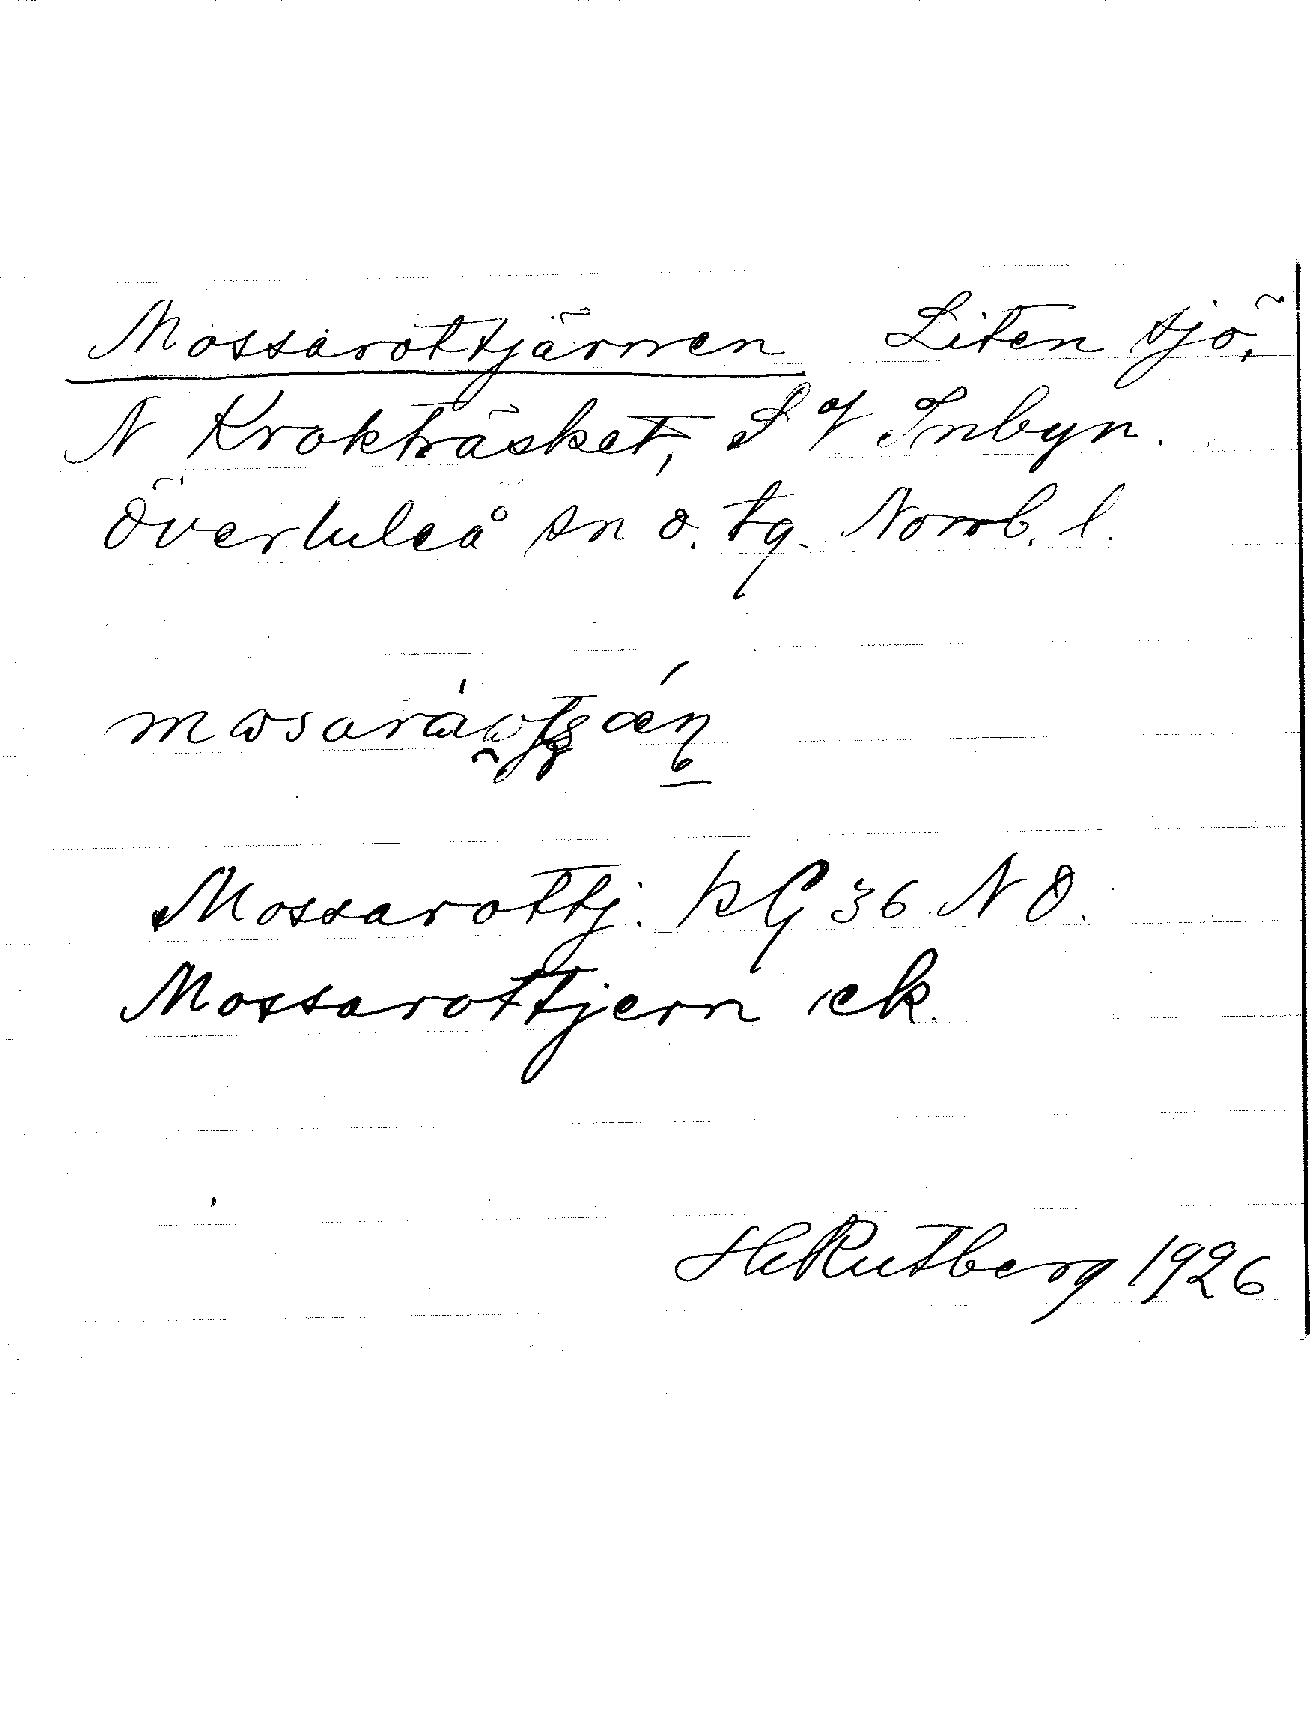 Mossarottjärnen Liten sjö,
N Krokträsket, S of Inbyn.
Överluleå sn o. tg. Norrb. l.
Mossarottj. på G 36 NO.
Mossarottjern ek.
H Rutberg 1926